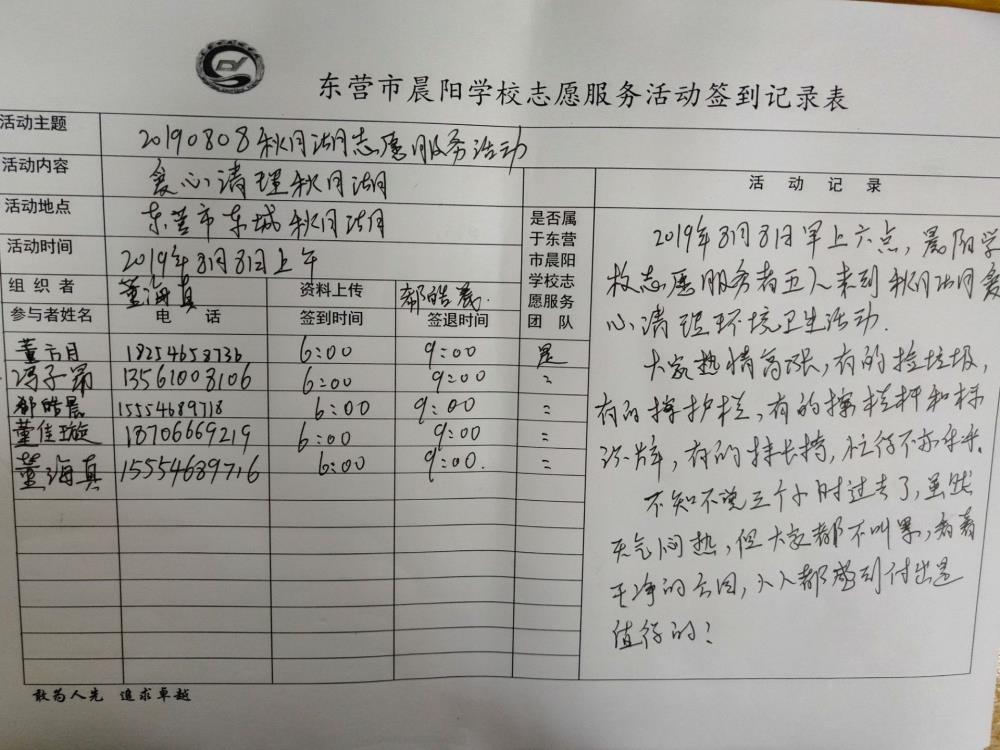 东营市晨阳学校志愿服务活动签到记录表
活动主题 20190808秋月湖志愿服务活动
活动内容 爱心清理秋月湖
活动地点 东营市东城秋月湖
活动时间 2019年8月8日上午
组织者 董海真 资料上传 郝皓晨
参与者姓名 电话 签到时间 签退时间 是否属于东营市晨阳学校志愿服务团队
董方月 18254658736 6:00 9:00 是
冯子昂 13561008106 6:00 9:00 〃
郝皓晨 15554689718 6:00 9:00 〃
董佳璇 18706669219 6:00 9:00 〃
董海真 15554689716 6:00 9:00. 〃
活动记录
2019年8月8日早上六点，晨阳学
校志愿服务者五人来到秋月湖爱
心清理环境卫生活动.
大家热情高涨，有的捡垃圾，
有的擦护栏，有的擦栏杆和标
识牌，有的擦长椅，忙得不亦乐乎.
不知不觉三个小时过去了，虽然
天气闷热，但大家都不叫累，看着
干净的公园，人人都感到付出是
值得的！
敢为人先 追求卓越